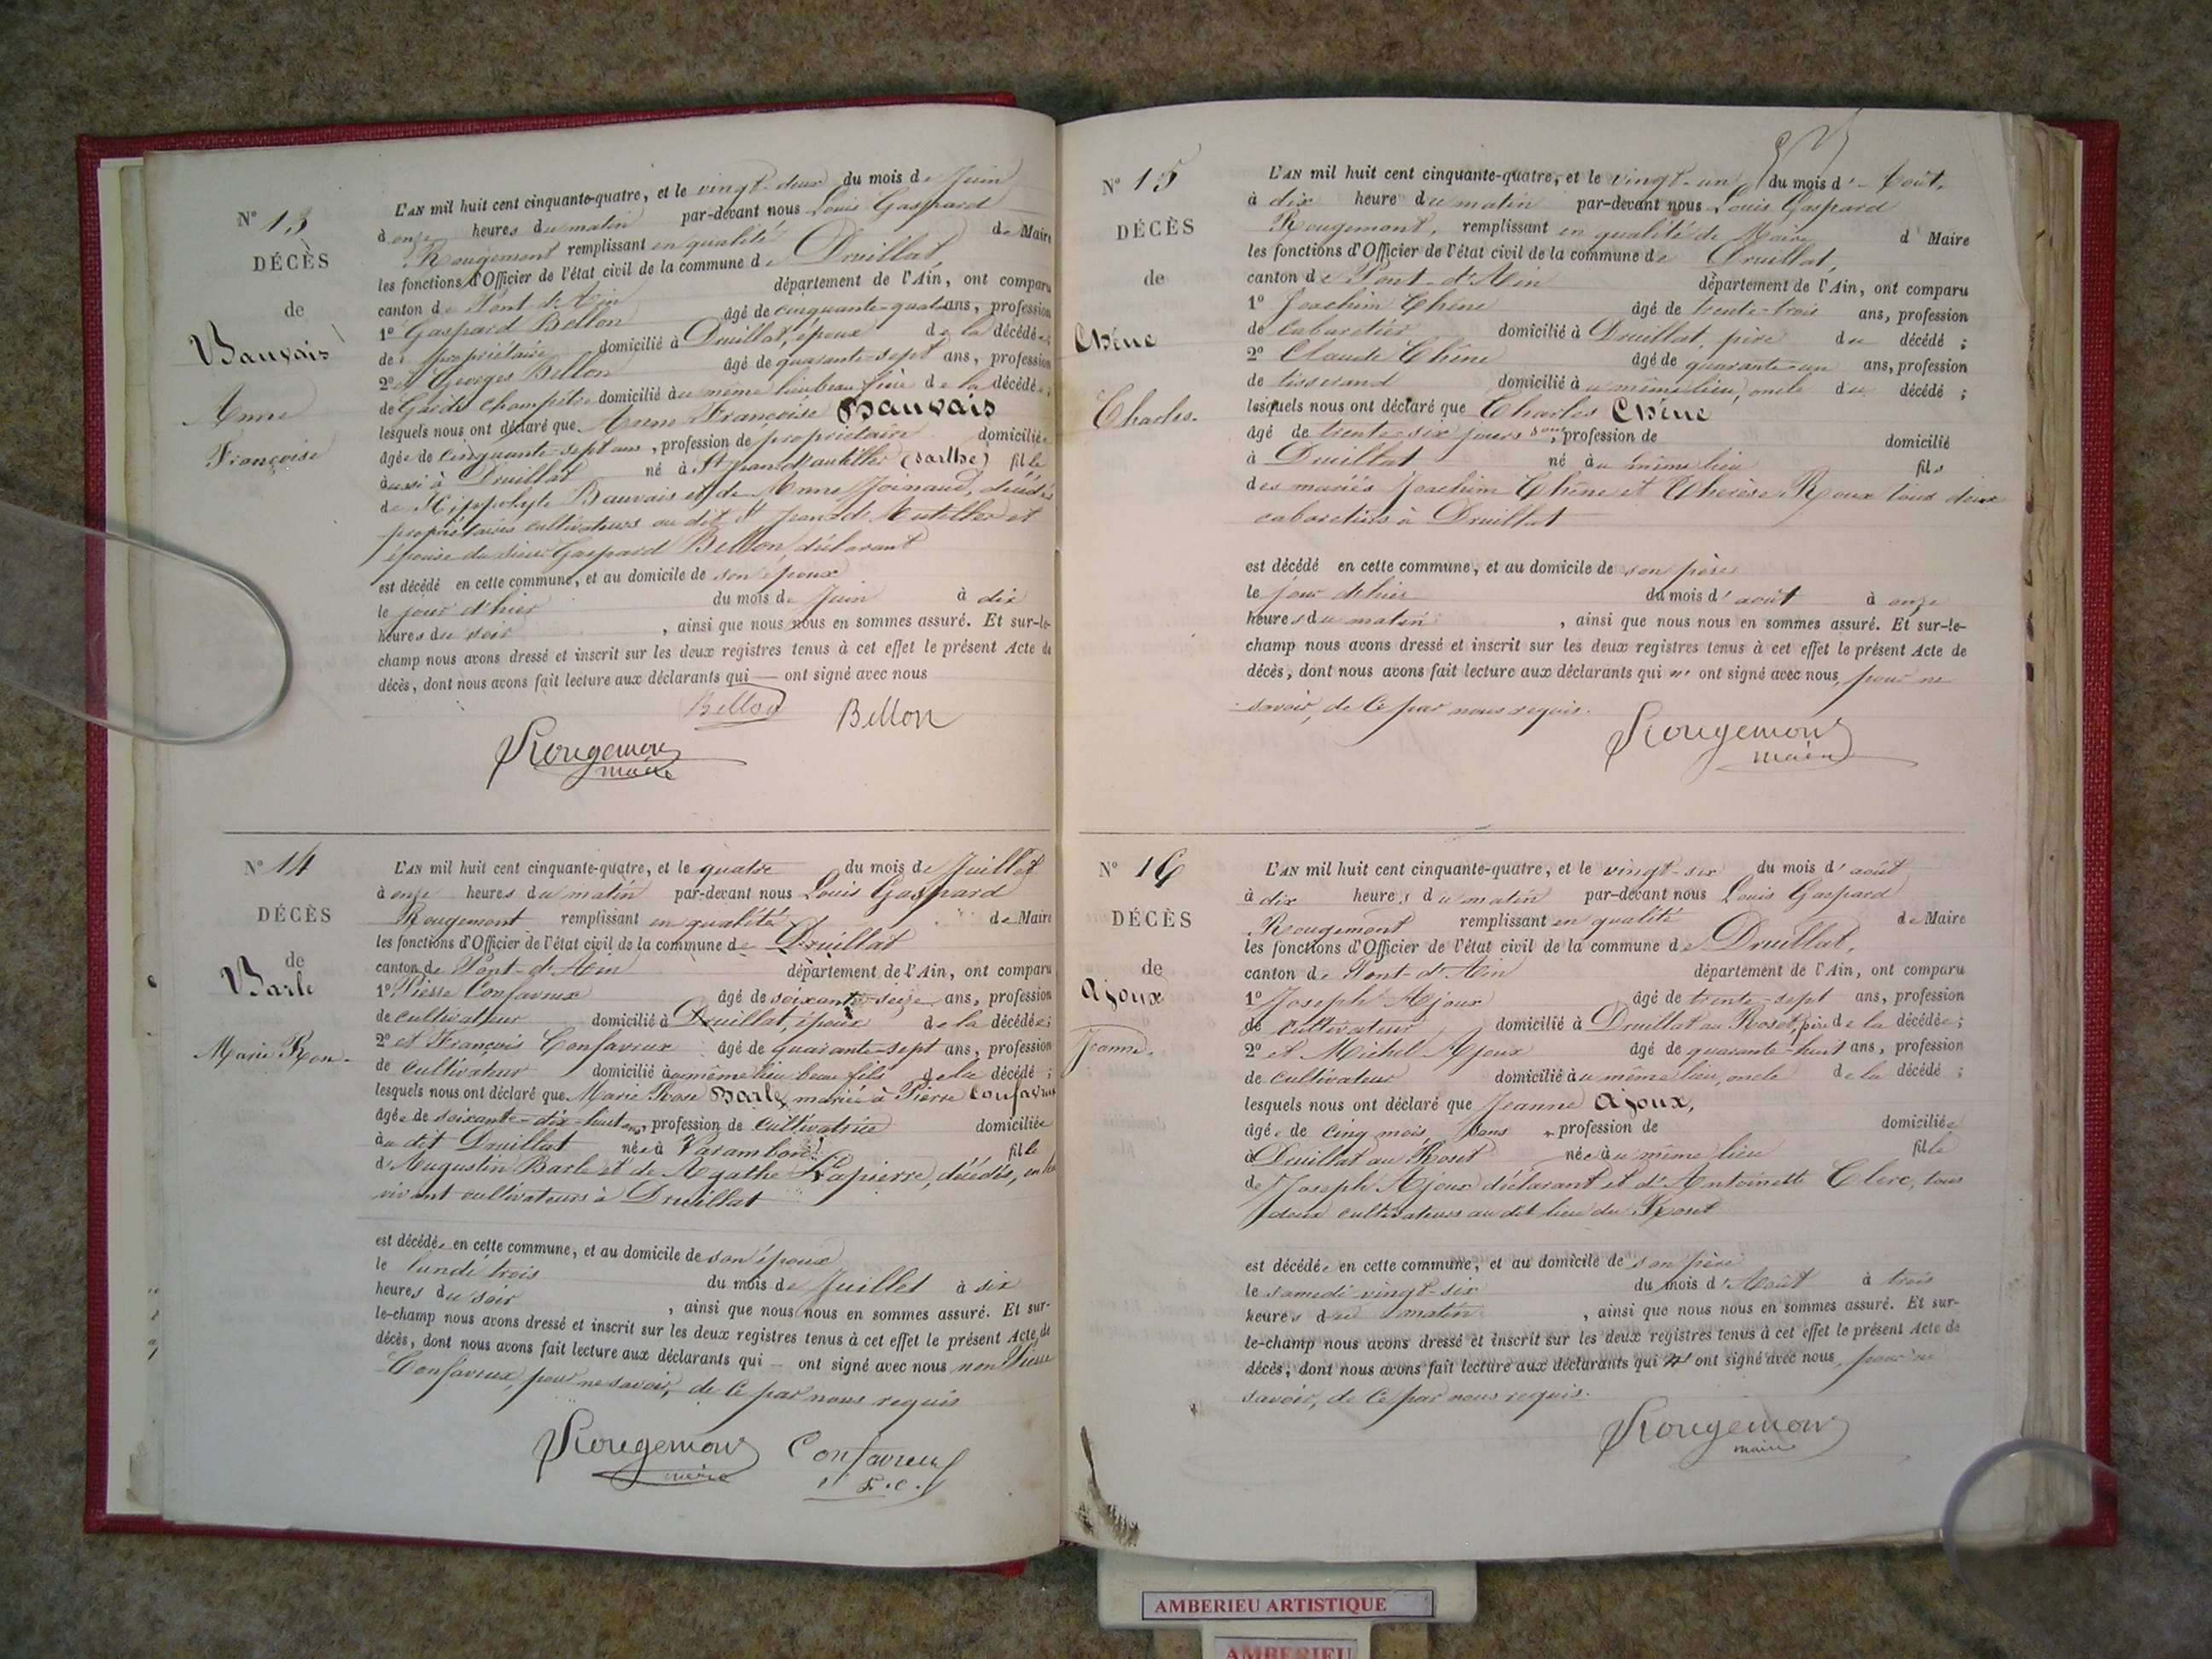 N° 13
DÉCÈS
de
Bauvais
Anne
Françoise
L'AN mil huit cent cinquante-quatre, et le vingt-deux du mois de Juin
à onze heures du matin par-devant nous Louis Gaspard
Rougemont remplissant en qualité de Maire
les fonctions d'Officier de l'état civil de la commune de Druillat,
canton de Pont-d'Ain département de l'Ain, ont comparu
1° Gaspard Bellon âgé de cinquante-quatre ans, profession
de propriétaire domicilié à Druillat, époux de la décédée;
2° et Georges Bellon âgé de quarante-sept ans, profession
de Garde champêtre domicilié au même lieu beau frère de la décédée;
lesquels nous ont déclaré que Anne Françoise Bauvais
âgée de cinquante-sept ans, profession de propriétaire domiciliée
aussi à Druillat né à St Jean d'autiller (Sarthe) fille
de Hippolyte Bauvais et de Anne Joinaud, décédés
propriétaires cultivateurs au dit St Jean d'Autiller et
épouse du sieur Gaspard Bellon, déclarant
est décédé en cette commune, et au domicile de son époux
le jour d'hier du mois de Juin à dix
heures du soir, ainsi que nous nous en sommes assuré. Et sur-le-
champ nous avons dressé et inscrit sur les deux registres tenus à cet effet le présent Acte de
décès, dont nous avons fait lecture aux déclarants qui — ont signé avec nous
Bellon Bellon
Rougemont
maire
N° 14
DÉCÈS
de
Barle
Marie Rose.
L'AN mil huit cent cinquante-quatre, et le quatre du mois de Juillet
à onze heures du matin par-devant nous Louis Gaspard
Rougemont remplissant en qualité de Maire
les fonctions d'Officier de l'état civil de la commune de Druillat
canton de Pont-d'Ain département de l'Ain, ont comparu
1° Pierre Confavreux âgé de soixante-seize ans, profession
de cultivateur domicilié à Druillat, époux de la décédée;
2° et François Confavreux âgé de quarante-sept ans, profession
de cultivateur domicilié au même lieu beau fils de la décédé;
lesquels nous ont déclaré que Marie Rose Barle, mariée à Pierre Confavreux
âgée de soixante-dix-huit ans, profession de cultivatrice domiciliée
au dit Druillat née à Varambon fille
d'Augustin Barle et de Agathe Lapierre, décédés, en leur
vivant cultivateurs à Druillat
est décédée en cette commune, et au domicile de son époux
le lundi trois du mois de Juillet à six
heures du soir, ainsi que nous nous en sommes assuré. Et sur-
le-champ nous avons dressé et inscrit sur les deux registres tenus à cet effet le présent Acte de
décès, dont nous avons fait lecture aux déclarants qui — ont signé avec nous non Pierre
Confavreux, pour ne savoir, de ce par nous requis
Rougemont Confavreux
maire F.C.
N° 15
DÉCÈS
de
Chêne
Charles.
L'AN mil huit cent cinquante-quatre, et le vingt-un du mois d'Août,
à dix heure du matin par-devant nous Louis Gaspard
Rougemont, remplissant en qualité de Maire d Maire
les fonctions d'Officier de l'état civil de la commune de Druillat,
canton de Pont-d'Ain département de l'Ain, ont comparu
1° Joachim Chêne âgé de trente-trois ans, profession
de cabaretier domicilié à Druillat, père du décédé;
2° Claude Chêne âgé de quarante-un ans, profession
de tisserand domicilié au même lieu, oncle du décédé;
lesquels nous ont déclaré que Charles Chêne
âgé de trente-six jours sans, profession de domicilié
à Druillat né au même lieu fils
des mariés Joachim Chêne et Thérèse Roux tous deux
cabaretiers à Druillat
est décédé en cette commune, et au domicile de son père
le jour d'hier du mois d'août à onze
heures du matin, ainsi que nous nous en sommes assuré. Et sur-le-
champ nous avons dressé et inscrit sur les deux registres tenus à cet effet le présent Acte de
décès, dont nous avons fait lecture aux déclarants qui n' ont signé avec nous, pour ne
savoir, de ce par nous requis.
Rougemont
maire
N° 16
DÉCÈS
de
Ajoux
Jeanne.
L'AN mil huit cent cinquante-quatre, et le vingt-six du mois d'août
à dix heures du matin par-devant nous Louis Gaspard
Rougemont remplissant en qualité de Maire
les fonctions d'Officier de l'état civil de la commune de Druillat,
canton de Pont-d'Ain département de l'Ain, ont comparu
1° Joseph Ajoux âgé de trente-sept ans, profession
de cultivateur domicilié à Druillat au Roset, père de la décédée;
2° et Michel Ajoux âgé de quarante-huit ans, profession
de cultivateur domicilié au même lieu, oncle de la décédé;
lesquels nous ont déclaré que Jeanne Ajoux,
âgée de cinq mois, sans profession de domiciliée
à Druillat au Roset née au même lieu fille
de Joseph Ajoux déclarant et d'Antoinette Clerc, tous
deux cultivateurs au dit lieu du Roset
est décédée en cette commune, et au domicile de son père
le samedi vingt-six du mois d'Août à trois
heures du matin, ainsi que nous nous en sommes assuré. Et sur-
le-champ nous avons dressé et inscrit sur les deux registres tenus à cet effet le présent Acte de
décès, dont nous avons fait lecture aux déclarants qui n' ont signé avec nous, pour ne
savoir, de ce par nous requis.
Rougemont
maire
AMBERIEU ARTISTIQUE
AMBERIEU